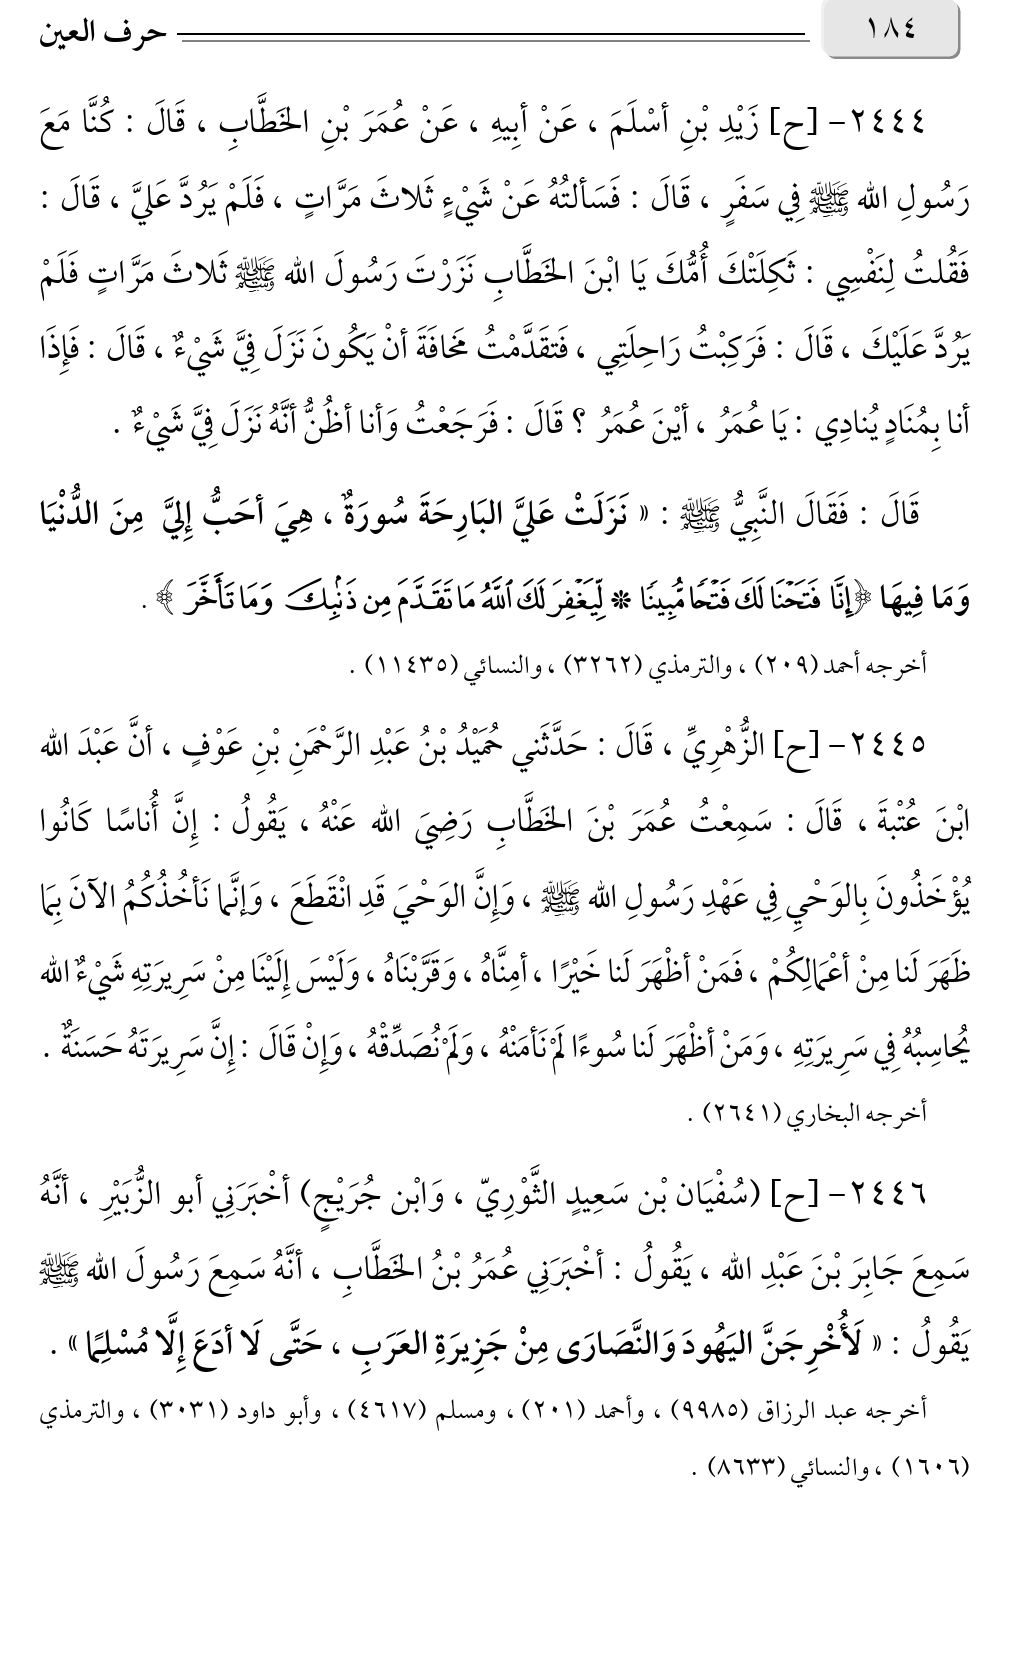 ١٨٤ حرف العين
٢٤٤٤- [ح] زَيْدِ بْنِ أسْلَمَ ، عَنْ أبِيهِ ، عَنْ عُمَرَ بْنِ الخَطَّابِ ، قَالَ : كُنَّا مَعَ
رَسُولِ الله ﷺ فِي سَفَرٍ ، قَالَ : فَسَألتُهُ عَنْ شَيْءٍ ثَلاثَ مَرَّاتٍ ، فَلَمْ يَرُدَّ عَليَّ ، قَالَ :
فَقُلتُ لِنَفْسِي : ثَكِلَتْكَ أُمُّكَ يَا ابْنَ الخَطَّابِ نَزَرْتَ رَسُولَ الله ﷺ ثَلاثَ مَرَّاتٍ فَلَمْ
يَرُدَّ عَلَيْكَ ، قَالَ : فَرَكِبْتُ رَاحِلَتِي ، فَتقَدَّمْتُ مَخافَةَ أنْ يَكُونَ نَزَلَ فِيَّ شَيْءٌ ، قَالَ : فَإِذَا
أنا بِمُنَادٍ يُنادِي : يَا عُمَرُ ، أيْنَ عُمَرُ ؟ قَالَ : فَرَجَعْتُ وَأنا أظُنُّ أنَّهُ نَزَلَ فِيَّ شَيْءٌ .
قَالَ : فَقَالَ النَّبِيُّ ﷺ : « نَزَلَتْ عَليَّ البَارِحَةَ سُورَةٌ ، هِيَ أحَبُّ إِليَّ مِنَ الدُّنْيَا
وَمَا فِيهَا ﴿إِنَّا فَتَحْنَا لَكَ فَتْحًا مُّبِينًا * لِّيَغْفِرَ لَكَ ٱللَّهُ مَا تَقَدَّمَ مِن ذَنۢبِكَ وَمَا تَأَخَّرَ ﴾ .
أخرجه أحمد (٢٠٩) ، والترمذي (٣٢٦٢) ، والنسائي (١١٤٣٥) .
٢٤٤٥- [ح] الزُّهْرِيِّ ، قَالَ : حَدَّثَني حُمَيْدُ بْنُ عَبْدِ الرَّحْمَنِ بْنِ عَوْفٍ ، أنَّ عَبْدَ الله
ابْنَ عُتْبةَ ، قَالَ : سَمِعْتُ عُمَرَ بْنَ الخَطَّابِ رَضِيَ الله عَنْهُ ، يَقُولُ : إِنَّ أُناسًا كَانُوا
يُؤْخَذُونَ بِالوَحْيِ فِي عَهْدِ رَسُولِ الله ﷺ ، وَإِنَّ الوَحْيَ قَدِ انْقَطَعَ ، وَإنَّما نَأخُذُكُمُ الآنَ بِمَا
ظَهَرَ لَنا مِنْ أعْمَالِكُمْ ، فَمَنْ أظْهَرَ لَنا خَيْرًا ، أمِنَّاهُ ، وَقَرَّبْنَاهُ ، وَلَيْسَ إِلَيْنَا مِنْ سَرِيرَتِهِ شَيْءٌ الله
يُحاسِبُهُ فِي سَرِيرَتِهِ ، وَمَنْ أظْهَرَ لَنا سُوءًا لَمْ نَأمَنْهُ ، وَلَمْ نُصَدِّقْهُ ، وَإِنْ قَالَ : إِنَّ سَرِيرَتَهُ حَسَنَةٌ .
أخرجه البخاري (٢٦٤١) .
٢٤٤٦- [ح] (سُفْيَان بْن سَعِيدٍ الثَّوْرِيّ ، وَابْن جُرَيْجٍ) أخْبَرَنِي أبو الزُّبَيْرِ ، أنَّهُ
سَمِعَ جَابِرَ بْنَ عَبْدِ الله ، يَقُولُ : أخْبَرَنِي عُمَرُ بْنُ الخَطَّابِ ، أنَّهُ سَمِعَ رَسُولَ الله ﷺ
يَقُولُ : « لَأُخْرِجَنَّ اليَهُودَ وَالنَّصَارَى مِنْ جَزِيرَةِ العَرَبِ ، حَتَّى لَا أدَعَ إِلَّا مُسْلِمًا » .
أخرجه عبد الرزاق (٩٩٨٥) ، وأحمد (٢٠١) ، ومسلم (٤٦١٧) ، وأبو داود (٣٠٣١) ، والترمذي
(١٦٠٦) ، والنسائي (٨٦٣٣) .